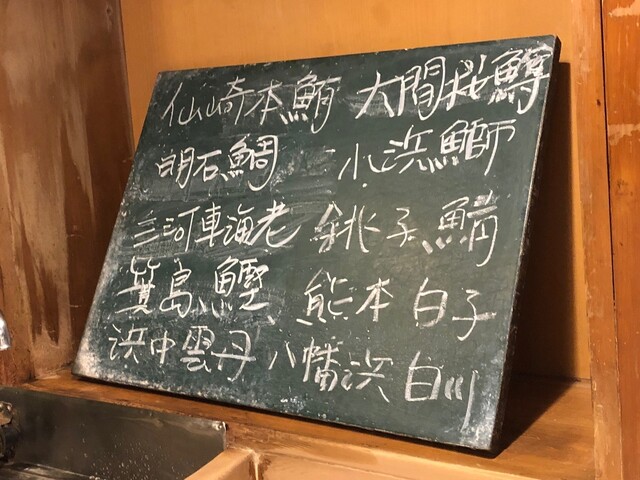 仙崎本鮪 大間桜鱒
明石鯛 小浜鰤
三河車海老 銚子鯖
箕島鰹 熊本白子
浜中雲丹 八幡浜白川